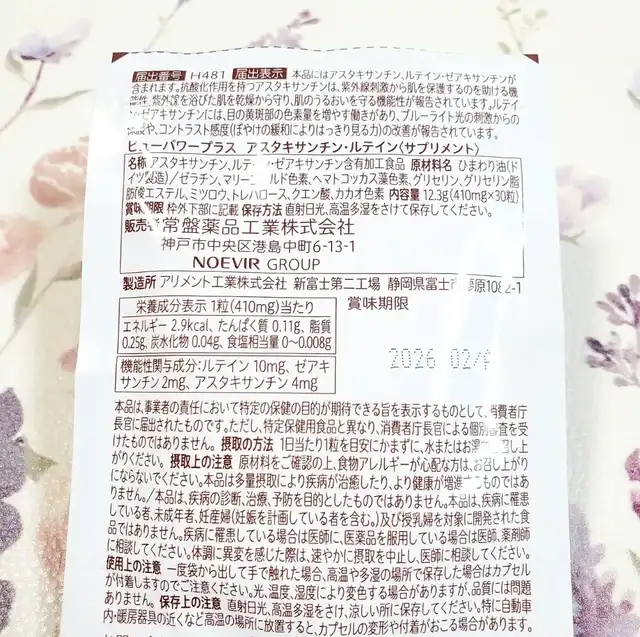 届出番号 H481 届出表示 本品にはアスタキサンチン、ルテイン・ゼアキサンチンが
含まれます。抗酸化作用を持つアスタキサンチンは、紫外線刺激から肌を保護するのを助ける機
能性、紫外線を浴びた肌を乾燥から守り、肌のうるおいを守る機能性が報告されています。ルテイ
ン・ゼアキサンチンには、目の黄斑部の色素量を増やす働きがあり、ブルーライト光の刺激からの
や、コントラスト感度(ぼやけの緩和によりはっきり見る力)の改善が報告されています。
ビューパワープラス アスタキサンチン・ルテイン〈サプリメント〉
名称 アスタキサンチン、ルテイン・ゼアキサンチン含有加工食品 原材料名 ひまわり油(ド
イツ製造)/ゼラチン、マリーゴールド色素、ヘマトコッカス藻色素、グリセリン、グリセリン脂
肪酸エステル、ミツロウ、トレハロース、クエン酸、カカオ色素 内容量 12.3g(410mg×30粒)
賞味期限 枠外下部に記載 保存方法 直射日光、高温多湿をさけて保存してください。
販売者 常盤薬品工業株式会社
神戸市中央区港島中町6-13-1
NOEVIR GROUP
製造所 アリメント工業株式会社 新富士第二工場 静岡県富士市 原1082-1
栄養成分表示 1粒(410mg)当たり
エネルギー 2.9kcal、たんぱく質 0.11g、脂質
0.25g、炭水化物 0.04g、食塩相当量 0~0.008g
賞味期限
2026 02/
機能性関与成分:ルテイン 10mg、ゼアキ
サンチン 2mg、アスタキサンチン 4mg
本品は、事業者の責任において特定の保健の目的が期待できる旨を表示するものとして、消費者庁
長官に届出されたものです。ただし、特定保健用食品と異なり、消費者庁長官による個別審査を受
けたものではありません。 摂取の方法 1日当たり1粒を目安にかまずに、水またはお湯 召し上
がりください。 摂取上の注意 原材料をご確認の上、食物アレルギーが心配な方は、お召し上がり
にならないでください。本品は多量摂取により疾病が治癒したり、より健康が増進 ものではあ
りません。/本品は、疾病の診断、治療、予防を目的としたものではありません。本品は、疾病に罹患
している者、未成年者、妊産婦(妊娠を計画している者を含む。)及び授乳婦を対象に開発された食
品ではありません。疾病に罹患している場合は医師に、医薬品を服用している場合は医師、薬剤師
に相談してください。体調に異変を感じた際は、速やかに摂取を中止し、医師に相談してください。
使用上の注意 一度袋から出して手で触れた場合、高温や多湿の場所で保存した場合はカプセル
が付着しますのでご注意ください。光、温度、湿度により変色する場合がありますが、品質には問題
ありません。 保存上の注意 直射日光、高温多湿をさけ、涼しい所に保存してください。特に自動車
内・暖房器具の近くなど高温の場所に放置すると、カプセルの変形や付着がおこる場合があります。